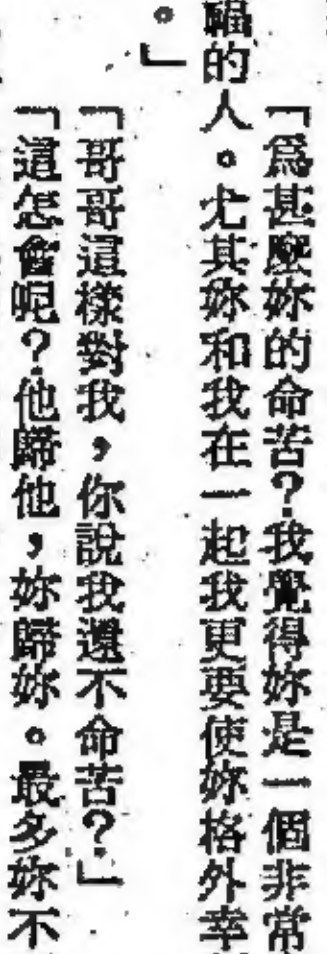 「爲甚麼妳的命苦？我覺得妳是一個非常
福的人。尤其妳和我在一起我更要使妳格外幸
。」
「哥哥這樣對我，你說我還不命苦？」
「這怎會呢？他歸他，妳歸妳。最多妳不